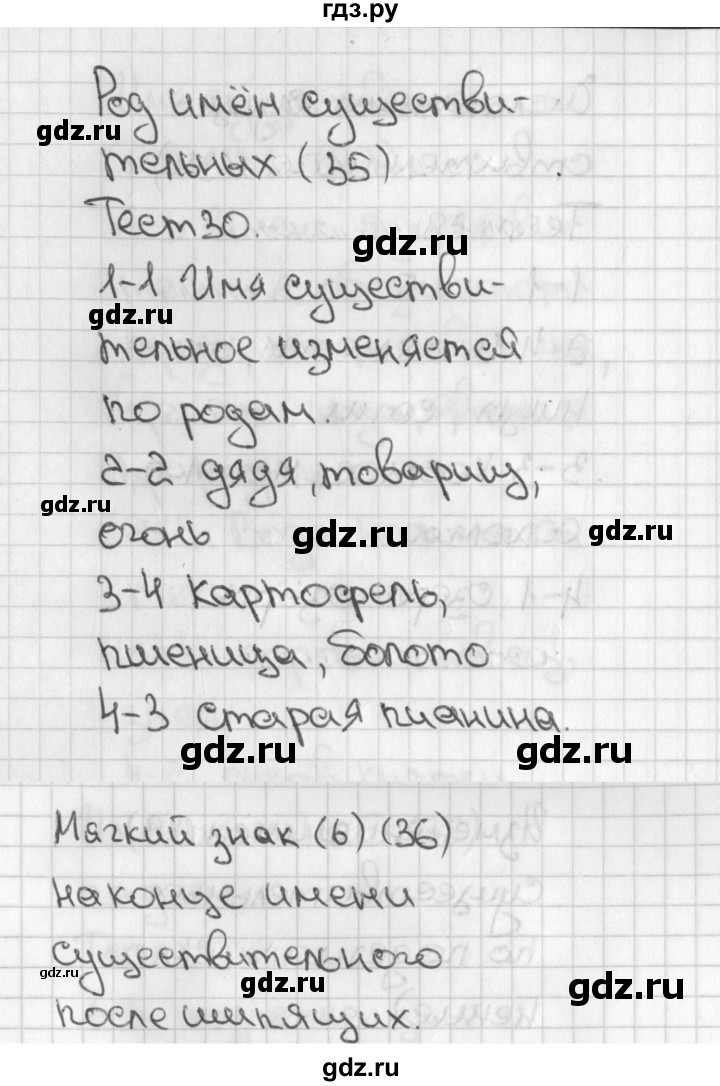 гдз.ру
Род имён существи-
gdz.ru
тельных (35)
Тест 30.
gdz.ru
1-1 Имя существи-
gdz.ru
тельное изменяется
по родам.
2-2 дядя, товарищ,
gdz.ru
огонь
gdz.ru
gdz.ru
3-4 картофель,
пшеница, болото
4-3 старая пианина.
gdz.ru
gdz.ru
Мягкий знак (ь) (36)
на конце имени
существительного
gdz.ru
gdz.ru
gdz.ru
после шипящих.
gdz.ru